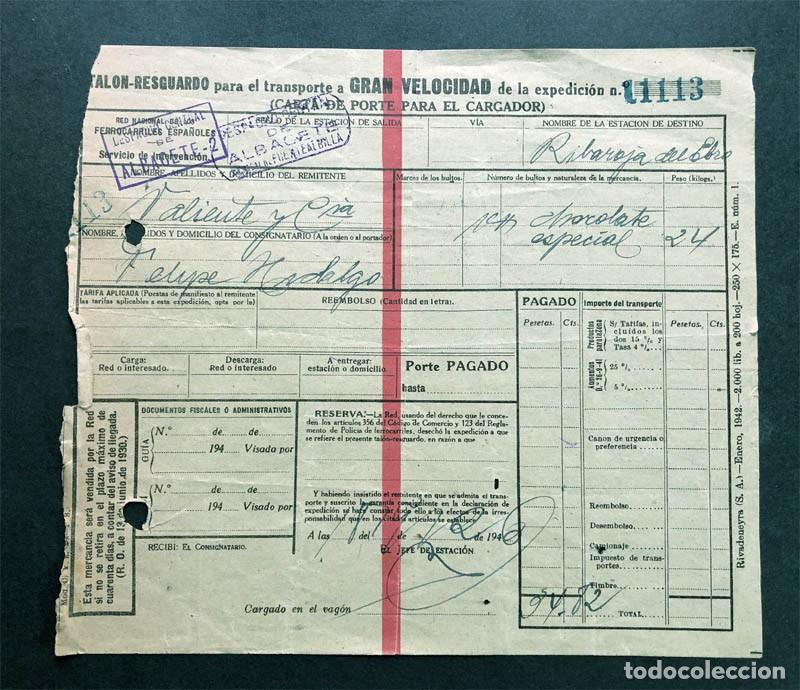 TALON-RESGUARDO para el transporte a GRAN VELOCIDAD de la expedición n.º 11113
(CARTA DE PORTE PARA EL CARGADOR)
RED NACIONAL
FERROCARRILES ESPAÑOLES
Servicio de Intervención.
DESPACHO CENTRAL
DE
ALBACETE-2
SELLO DE LA ESTACION DE SALIDA
DE
ALBACETE
VÍA
NOMBRE DE LA ESTACION DE DESTINO
Ribaroja del Ebro
NOMBRE, APELLIDOS Y DOMICILIO DEL REMITENTE
Marcas de los bultos.
Número de bultos y naturaleza de la mercancía.
Peso (kilogs.)
113
Valiente y Cia
chocolate
especial
24
NOMBRE, APELLIDOS Y DOMICILIO DEL CONSIGNATARIO (A la orden o al portador)
Felipe Hidalgo
TARIFA APLICADA (Puestas de manifiesto al remitente
las tarifas aplicables a esta expedición, opta por la)
REEMBOLSO (Cantidad en letra).
PAGADO
Importe del transporte
Pesetas. Cts.
Pesetas. Cts.
Productos
S/ Tarifas, in-
cluídos los
dos 15 % y
Tasa 4 %
Aumentos
25 %
5 %
Carga:
Red o interesado.
Descarga:
Red o interesado.
A entregar:
estación o domicilio.
Porte PAGADO
hasta
Esta mercancía será vendida por la Red
si no se retira en el plazo máximo de
cuarenta días, a contar del aviso de llegada.
(R. O. de 13 de Junio de 1930.)
DOCUMENTOS FISCALES Ó ADMINISTRATIVOS
GUÍA
N.º de de
194 Visado por
N.º de de
194 Visado por
RECIBÍ: EL CONSIGNATARIO.
RESERVA:—La Red, usando del derecho que le conce-
den los artículos 356 del Código de Comercio y 123 del Regla-
mento de Policía de ferrocarriles, desechó la expedición a que
se refiere el presente talón-resguardo, en razón a que
Y habiendo insistido el remitente en que se admita el trans-
porte y suscrito la garantía consiguiente en la declaración de
expedición se hace constar todo ello a los efectos de irres-
ponsabilidad que en los citados artículos se establece.
A las del de 194
EL JEFE DE ESTACIÓN
Cargado en el vagón
Canon de urgencia o
preferencia
Reembolso
Desembolso
Camionaje
Impuesto de trans-
portes
Timbre
TOTAL
Rivadeneyra (S. A.)—Enero, 1942.—2.000 lib. a 200 hoj.—250 × 175.—E. núm. 1.
todocoleccion